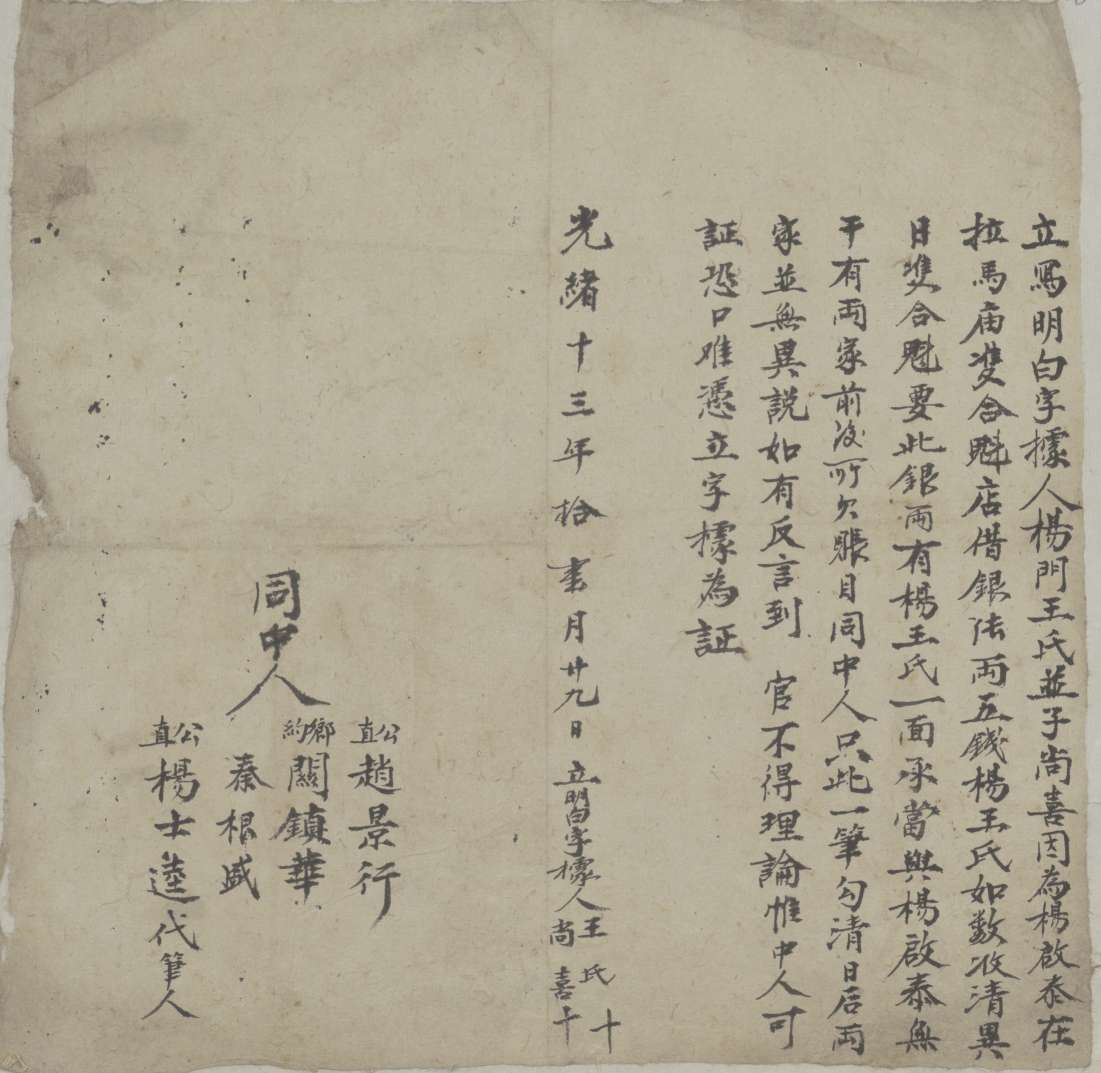 立寫明白字據人楊門王氏並子尚喜因為楊啟泰在
拉馬庙雙合魁店借銀陆兩五錢楊王氏如数收清異
日雙合魁要此銀兩有楊王氏一面承當與楊啟泰無
干有兩家前後所欠賬目同中人只此一筆勾清日后兩
家並無異説如有反言到 官不得理論惟中人可
証恐口难憑立字據為証
光緒十三年拾 月廿九日 立明白字據人王氏 十
尚喜 十
同中人
公直 趙景行
鄉約 關鎮華
秦根盛
公直 楊士逵代筆人